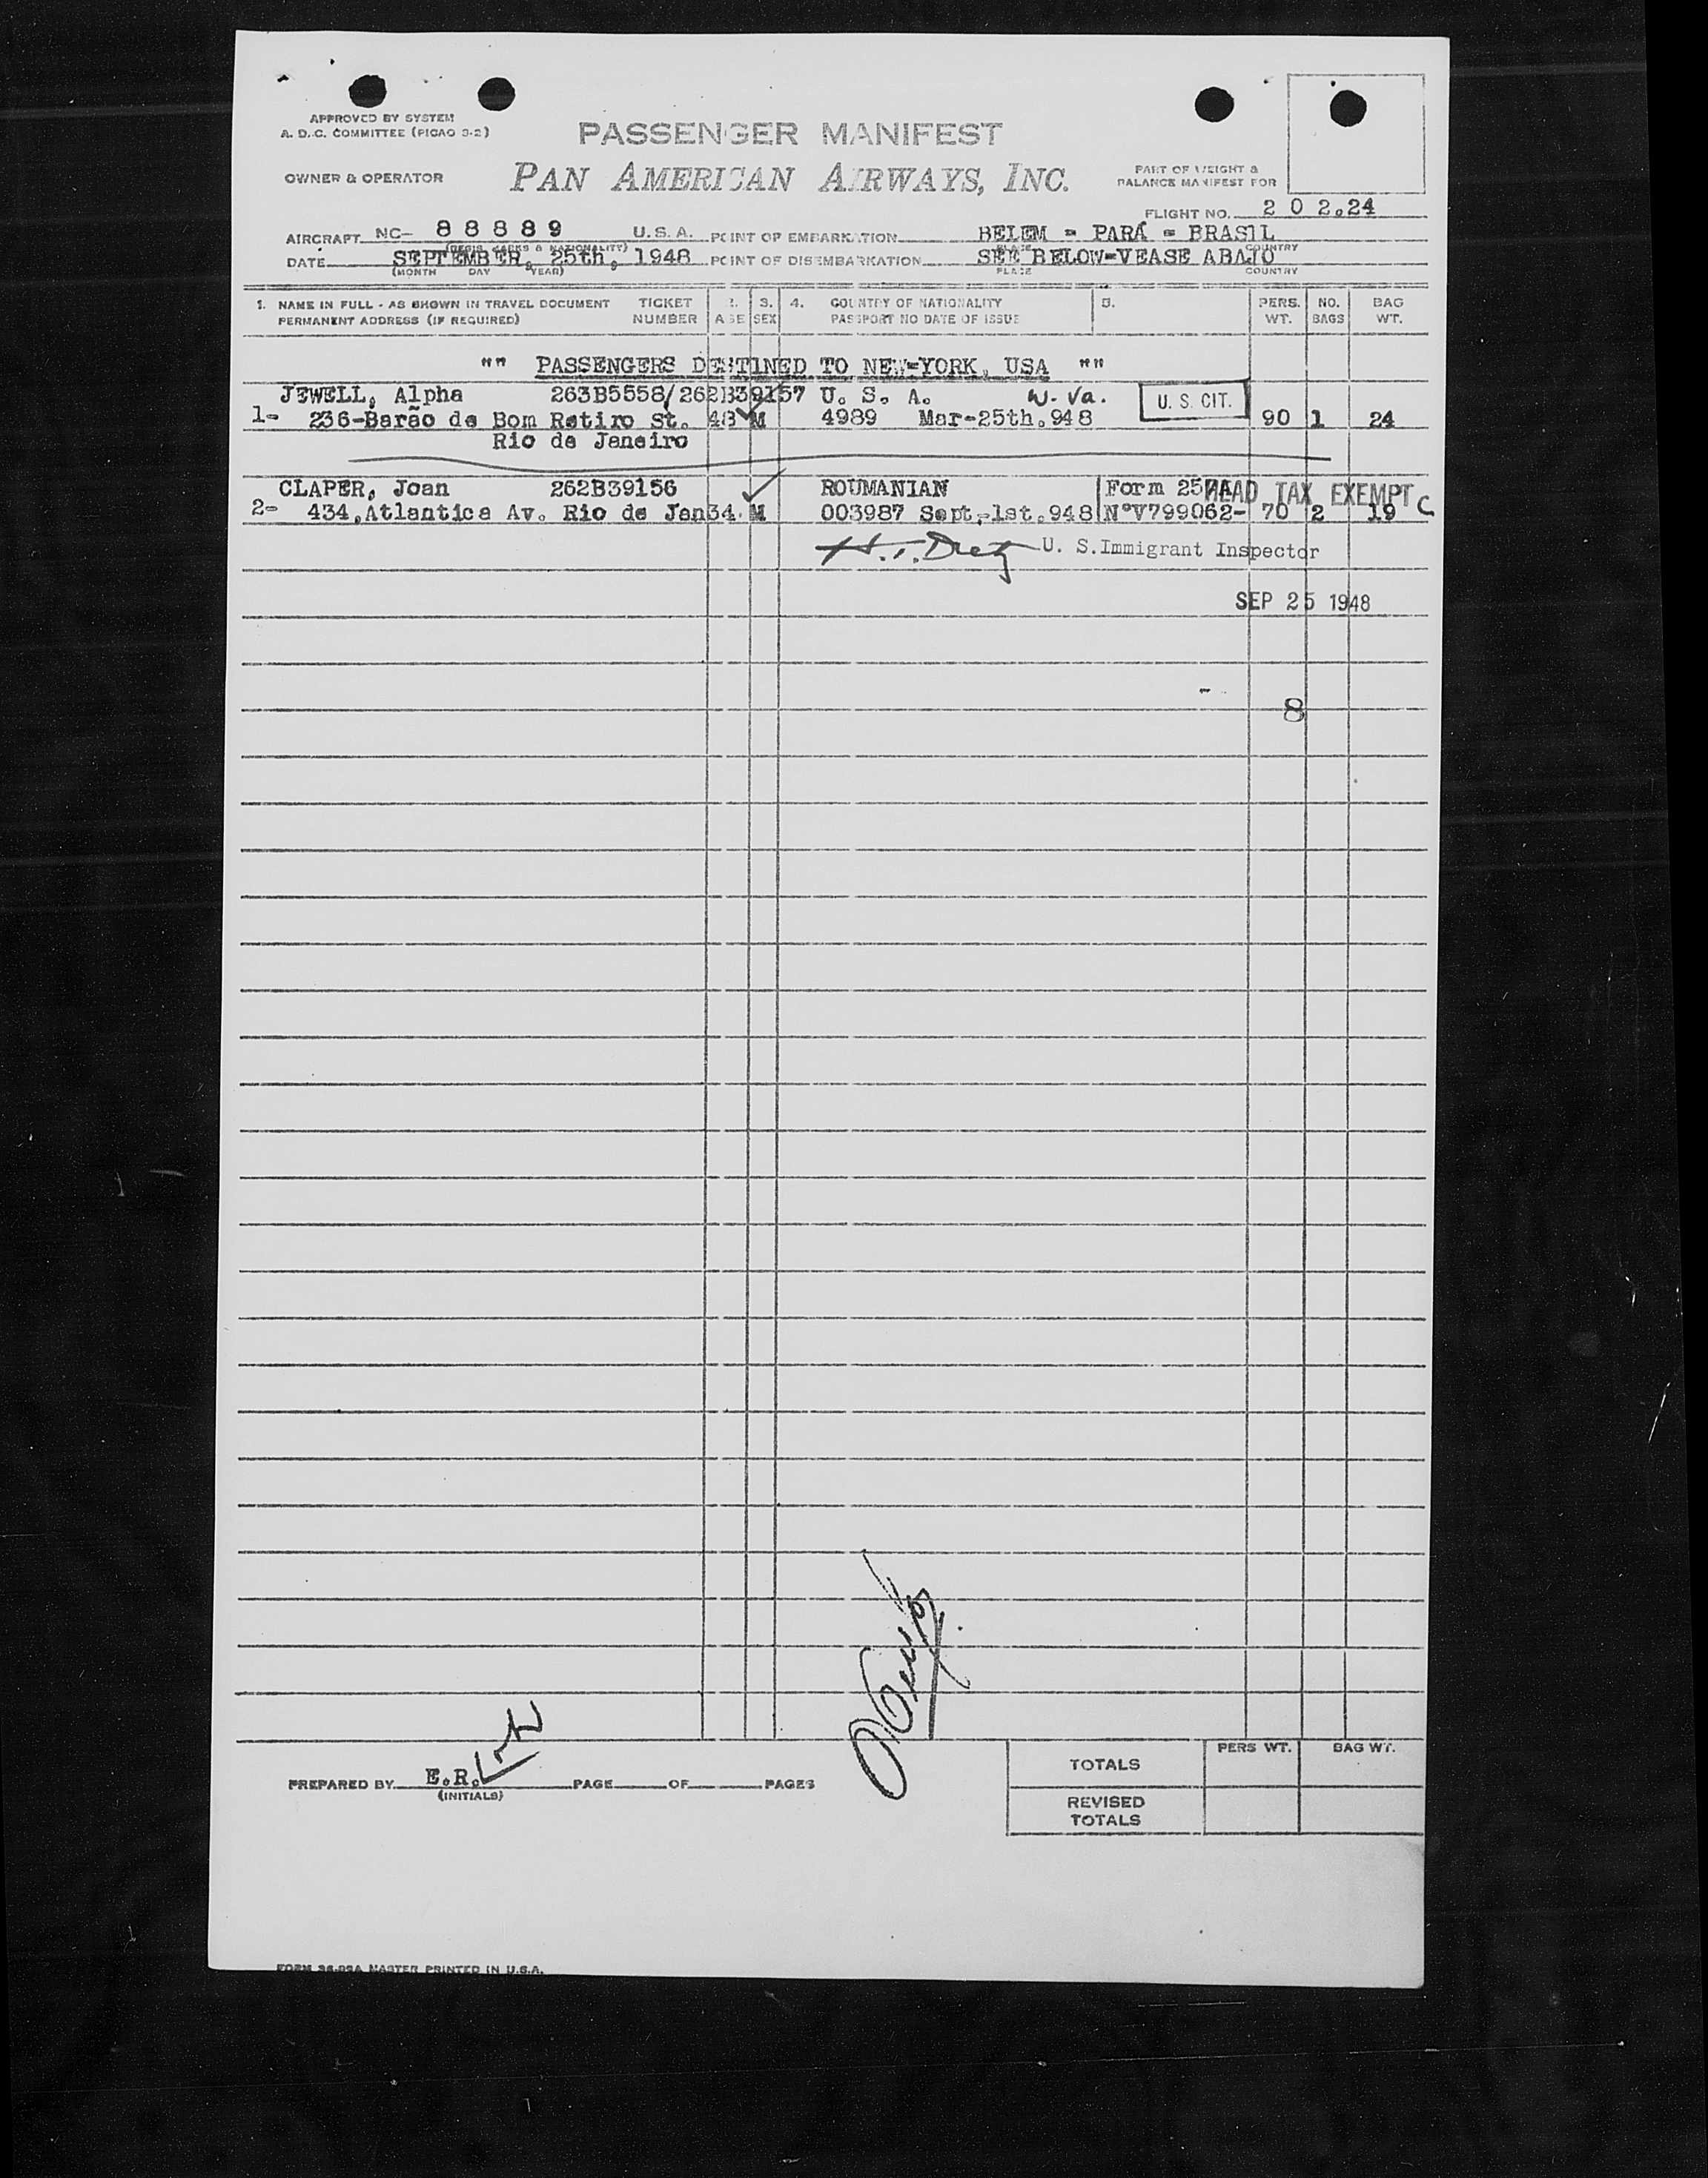 APPROVED BY SYSTEM
A. D. C. COMMITTEE (PICAO 3-2)
PASSENGER MANIFEST
OWNER & OPERATOR
PAN AMERICAN AIRWAYS, INC.
PART OF WEIGHT &
BALANCE MANIFEST FOR
FLIGHT NO. 2 0 2.24
AIRCRAFT NC- 8 8 8 8 9 U.S.A. POINT OF EMBARKATION BELEM - PARÁ - BRASIL
(REGIS. MARKS & NATIONALITY) PLACE COUNTRY
DATE SEPTEMBER, 25th, 1948 POINT OF DISEMBARKATION SEE BELOW-VEASE ABAJO
(MONTH DAY YEAR) PLACE COUNTRY
1. NAME IN FULL - AS SHOWN IN TRAVEL DOCUMENT TICKET 2. 3. 4. COUNTRY OF NATIONALITY 5. PERS. NO. BAG
PERMANENT ADDRESS (IF REQUIRED) NUMBER AGE SEX PASSPORT NO DATE OF ISSUE WT. BAGS WT.
"" PASSENGERS DESTINED TO NEW-YORK, USA ""
JEWELL, Alpha 263B5558/262B39157 U. S. A. W. Va. U. S. CIT.
1- 236-Barão de Bom Retiro St. 48 M 4989 Mar-25th.948 90 1 24
Rio de Janeiro
CLAPER, Joan 262B39156 ROUMANIAN Form 257A HEAD TAX EXEMPT C
2- 434,Atlantica Av. Rio de Jan 34 M 003987 Sept,-1st.948 NºV799062- 70 2 19
U. S. Immigrant Inspector
SEP 25 1948
8
PERS WT. BAG WT.
TOTALS
PREPARED BY E.R. PAGE OF PAGES
(INITIALS)
REVISED
TOTALS
FORM 36-03A MASTER PRINTED IN U.S.A.